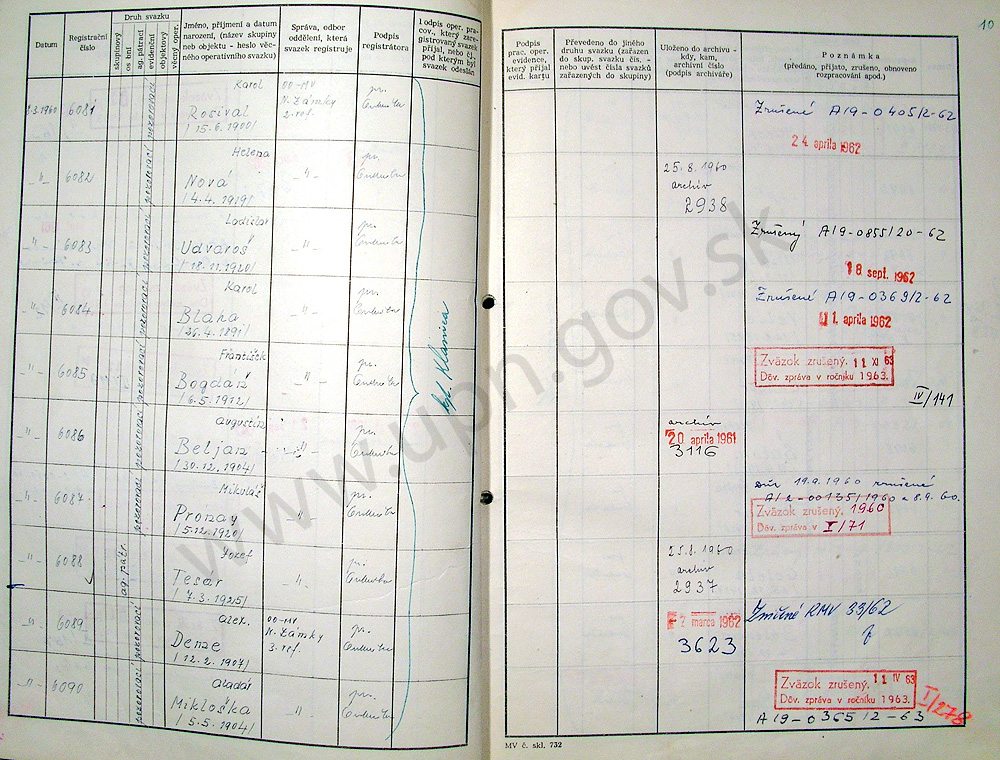 10
Datum
Registrační číslo
Druh svazku
skupinový
osobní
ag. pátrací
evidenční
objektový
věcný oper.
Jméno, příjmení a datum
narození, (název skupiny
neb objektu - heslo věc-
ného operativního svazku)
Správa, odbor
oddělení, která
svazek registruje
Podpis
registrátora
Podpis oper. pra-
cov., který za-
registrovaný svazek
přijal, nebo čj.
pod kterým byl
svazek odeslán
Podpis
prac. oper.
evidence,
který přijal
evid. kartu
Převedeno do jiného
druhu svazku (zařazen
do skup. svazku čís. -
nebo uvést čísla svazků
zařazených do skupiny)
Uloženo do archivu -
kdy, kam,
archivní číslo
(podpis archiváře)
Poznámka
(předáno, přijato, zrušeno, obnoveno
rozpracování apod.)
8.3.1960 6081 Karol
Rosival
/15.6.1900/
OO-MV
N. Zámky
2. ref.
Zrušené A19-0405/2-62
24 apríla 1962
-"- 6082 Helena
Nová
/4.4.1919/
-"-
25.8.1960
archív
2938
-"- 6083 Ladislav
Udvaroš
/18.11.1920/
-"-
Zrušený A19-0855/20-62
18 sept. 1962
-"- 6084 Karol
Blaha
/25.4.1891/
-"-
Zrušené A19-0369/2-62
1. apríla 1962
-"- 6085 František
Bogdáň
/6.5.1912/
-"-
Zväzok zrušený. 11 XI 63
Dôv. zpráva v ročníku 1963.
IV/141
-"- 6086 Augustín
Beljan
/30.12.1904/
-"-
archív
20 apríla 1961
3116
-"- 6087 Mikuláš
Pronay
/5.12.1920/
-"-
19.9.1960 zrušené
A/2-00135/1960 z 8.9.60.
Zväzok zrušený. 1960
Dôv. zpráva v I/71
-"- 6088 ag. pátr. Jozef
Tesár
/7.3.1925/
-"-
25.8.1960
archív
2937
-"- 6089 Alex.
Denze
/12.2.1907/
OO-MV
N. Zámky
3. ref.
2 marca 1962
3623
Zničené RMV 33/62
-"- 6090 Aladár
Mikloška
/5.5.1904/
-"-
Zväzok zrušený. 11 IV 63
Dôv. zpráva v ročníku 1963.
I/278
A19-0365/2-63
MV č. skl. 732
www.upn.gov.sk